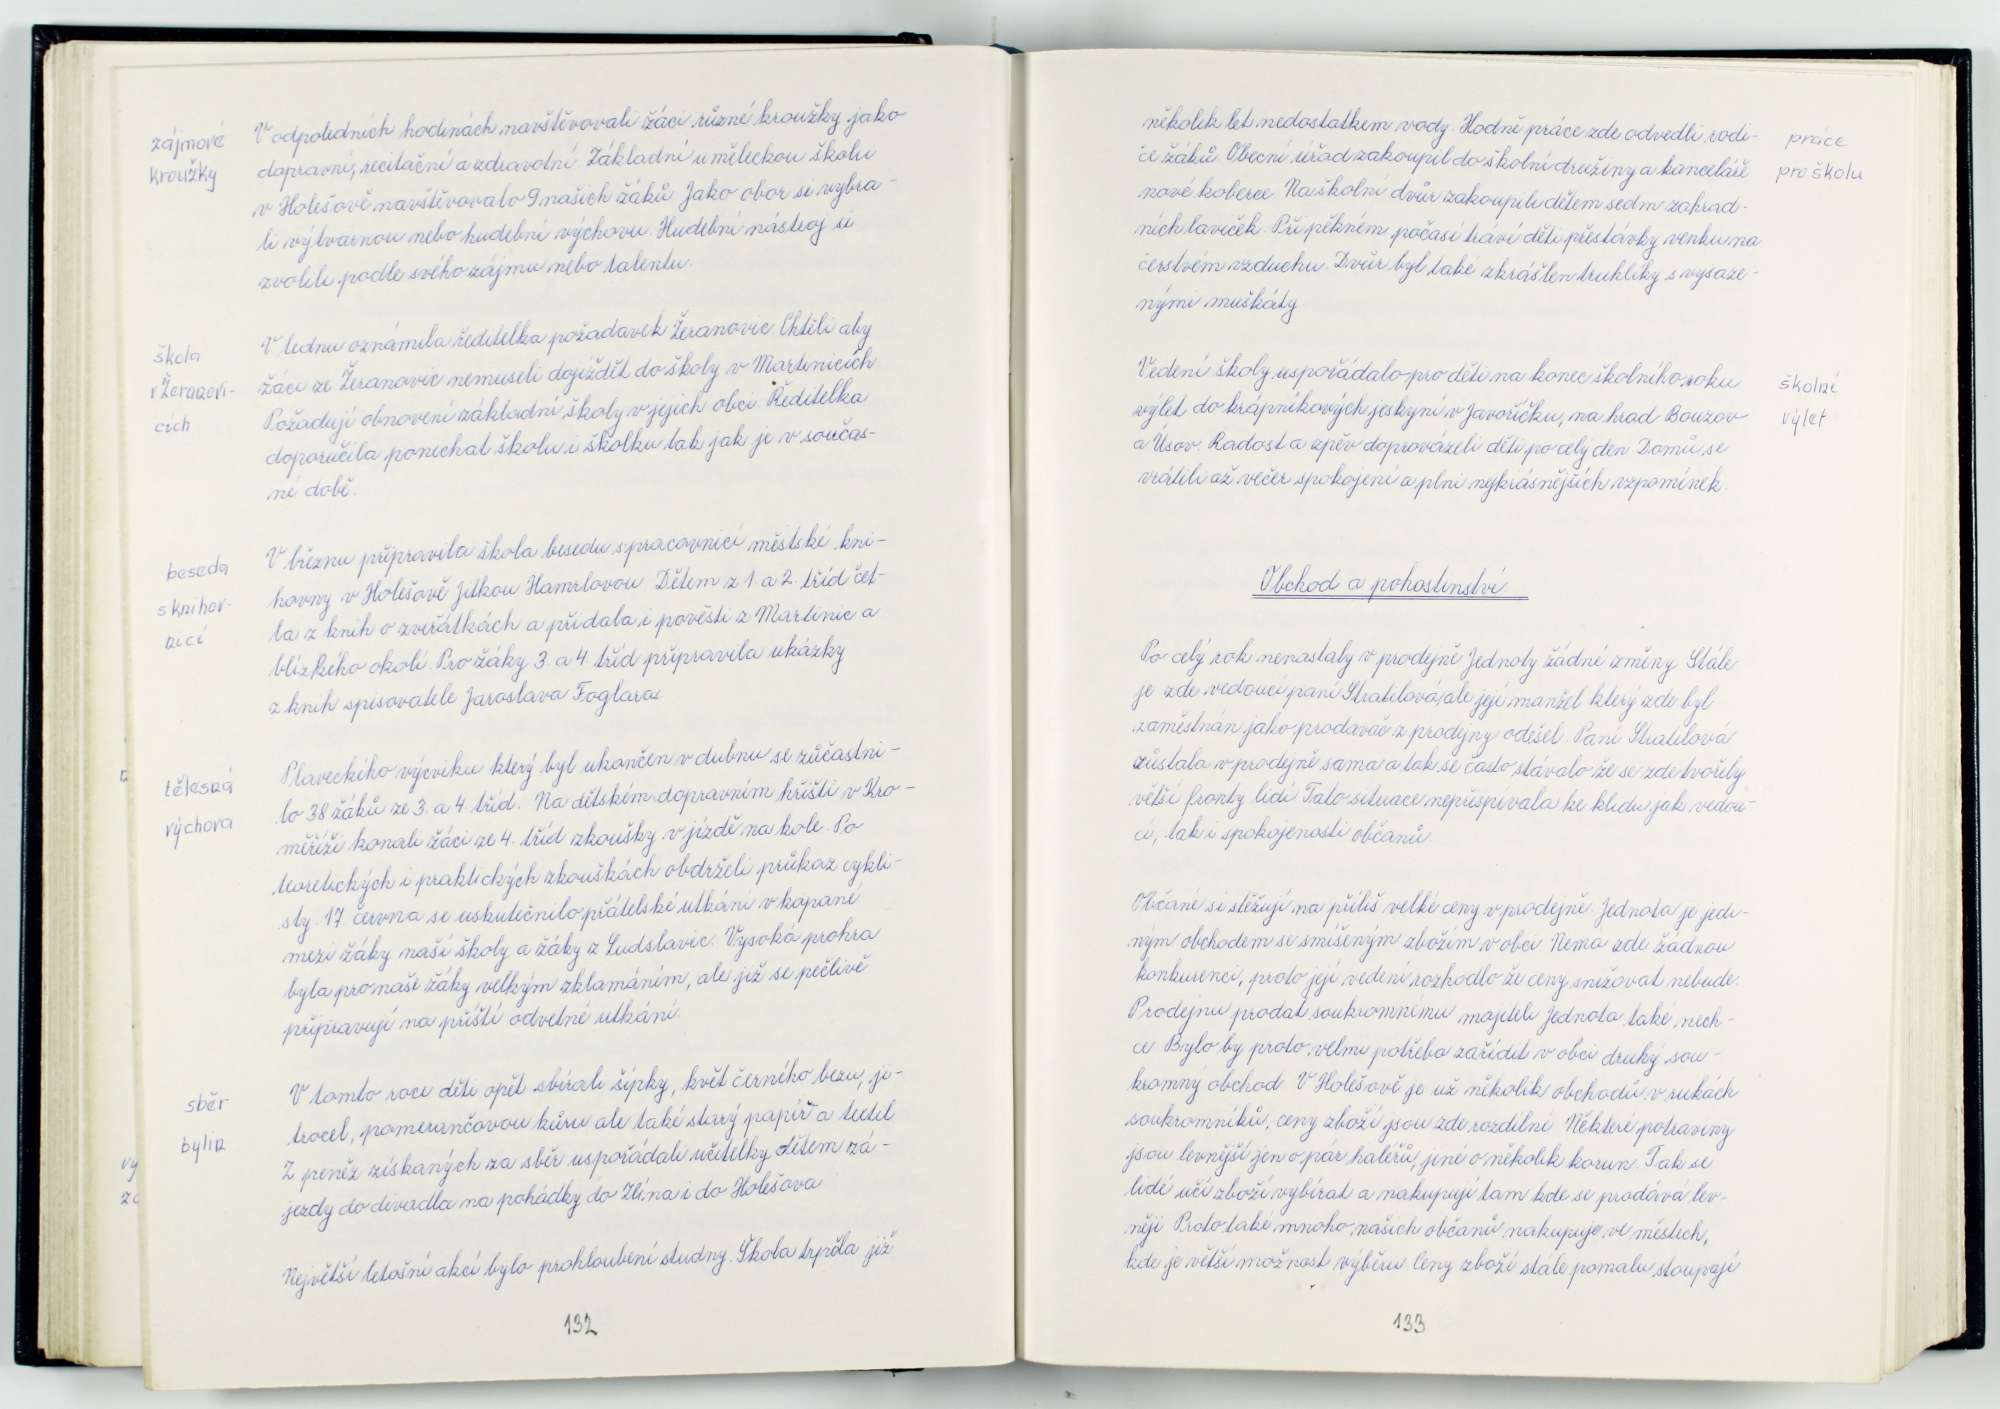 zájmové
kroužky
V odpoledních hodinách navštěvovali žáci různé kroužky jako
dopravní, recitační a zdravotní. Základní uměleckou školu
v Holešově navštěvovalo 9 našich žáků. Jako obor si vybra-
li výtvarnou nebo hudební výchovu. Hudební nástroj si
zvolili podle svého zájmu nebo talentu.
škola
v Žeranovi-
cích
V lednu oznámila ředitelka požadavek Žeranovic. Chtěli aby
žáci ze Žeranovic nemuseli dojíždět do školy v Martinicích
Požadují obnovení základní školy v jejich obci. Ředitelka
doporučila ponechat školu i školku tak jak je v součas-
né době.
beseda
s knihov-
nicí
V březnu připravila škola besedu s pracovnicí městské kni-
hovny v Holešově Jitkou Hamrlovou. Dětem z 1. a 2. tříd čet-
la z knih o zvířátkách a přidala i pověsti z Martinic a
blízkého okolí. Pro žáky 3. a 4. tříd připravila ukázky
z knih spisovatele Jaroslava Foglara.
tělesná
výchova
Plaveckého výcviku který byl ukončen v dubnu se zúčastni-
lo 38 žáků ze 3. a 4. tříd. Na dětském dopravním hřišti v Kro-
měříži konali žáci ze 4. tříd zkoušky v jízdě na kole. Po
teoretických i praktických zkouškách obdrželi průkaz cykli-
sty. 17 června se uskutečnilo přátelské utkání v kopané
mezi žáky naší školy a žáky z Ludslavic. Vysoká prohra
byla pro naše žáky velkým zklamáním, ale již se pečlivě
připravují na příští odvetné utkání.
sběr
bylin
V tomto roce děti opět sbírali šípky, květ černého bezu, ji-
trocel, pomerančovou kůru ale také starý papír a textil
Z peněz získaných za sběr uspořádali učitelky dětem zá-
jezdy do divadla na pohádky do Zlína i do Holešova.
Největší letošní akcí bylo prohloubení studny. Škola trpěla již
132
několik let nedostatkem vody. Hodně práce zde odvedli rodi-
če žáků. Obecní úřad zakoupil do školní družiny a kanceláře
nové koberce. Na školní dvůr zakoupili dětem sedm zahrad-
ních laviček. Při pěkném počasí tráví děti přestávky venku na
čerstvém vzduchu. Dvůr byl také zkrášlen truhlíky s vysaze-
nými muškáty.
práce
pro školu
Vedení školy uspořádalo pro děti na konec školního roku
výlet do krápníkových jeskyní v Javoříčku, na hrad Bouzov
a Úsov. Radost a zpěv doprovázeli děti po celý den. Domů se
vrátili až večer spokojení a plni nejkrásnějších vzpomínek.
školní
výlet
Obchod a pohostinství
Po celý rok nenastaly v prodejně Jednoty žádné změny. Stále
je zde vedoucí paní Stratilová, ale její manžel který zde byl
zaměstnán jako prodavač z prodejny odešel. Paní Stratilová
zůstala v prodejně sama a tak se často stávalo že se zde tvořily
větší fronty lidí. Tato situace nepřispívala ke klidu jak vedou-
cí, tak i spokojenosti občanů.
Občané si stěžují na příliš velké ceny v prodejně. Jednota je jedi-
ným obchodem se smíšeným zbožím v obci. Nemá zde žádnou
konkurenci, proto její vedení rozhodlo že ceny snižovat nebude.
Prodejnu prodat soukromnému majiteli Jednota také nech-
ce. Bylo by proto velmi potřeba zařídit v obci druhý sou-
kromný obchod. V Holešově je už několik obchodů v rukách
soukromníků, ceny zboží jsou zde rozdílné. Některé potraviny
jsou levnější jen o pár haléřů, jiné o několik korun. Tak se
lidé učí zboží vybírat a nakupují tam kde se prodává lev-
něji. Proto také mnoho našich občanů nakupuje ve městech,
kde je větší možnost výběru. Ceny zboží stále pomalu stoupají
133